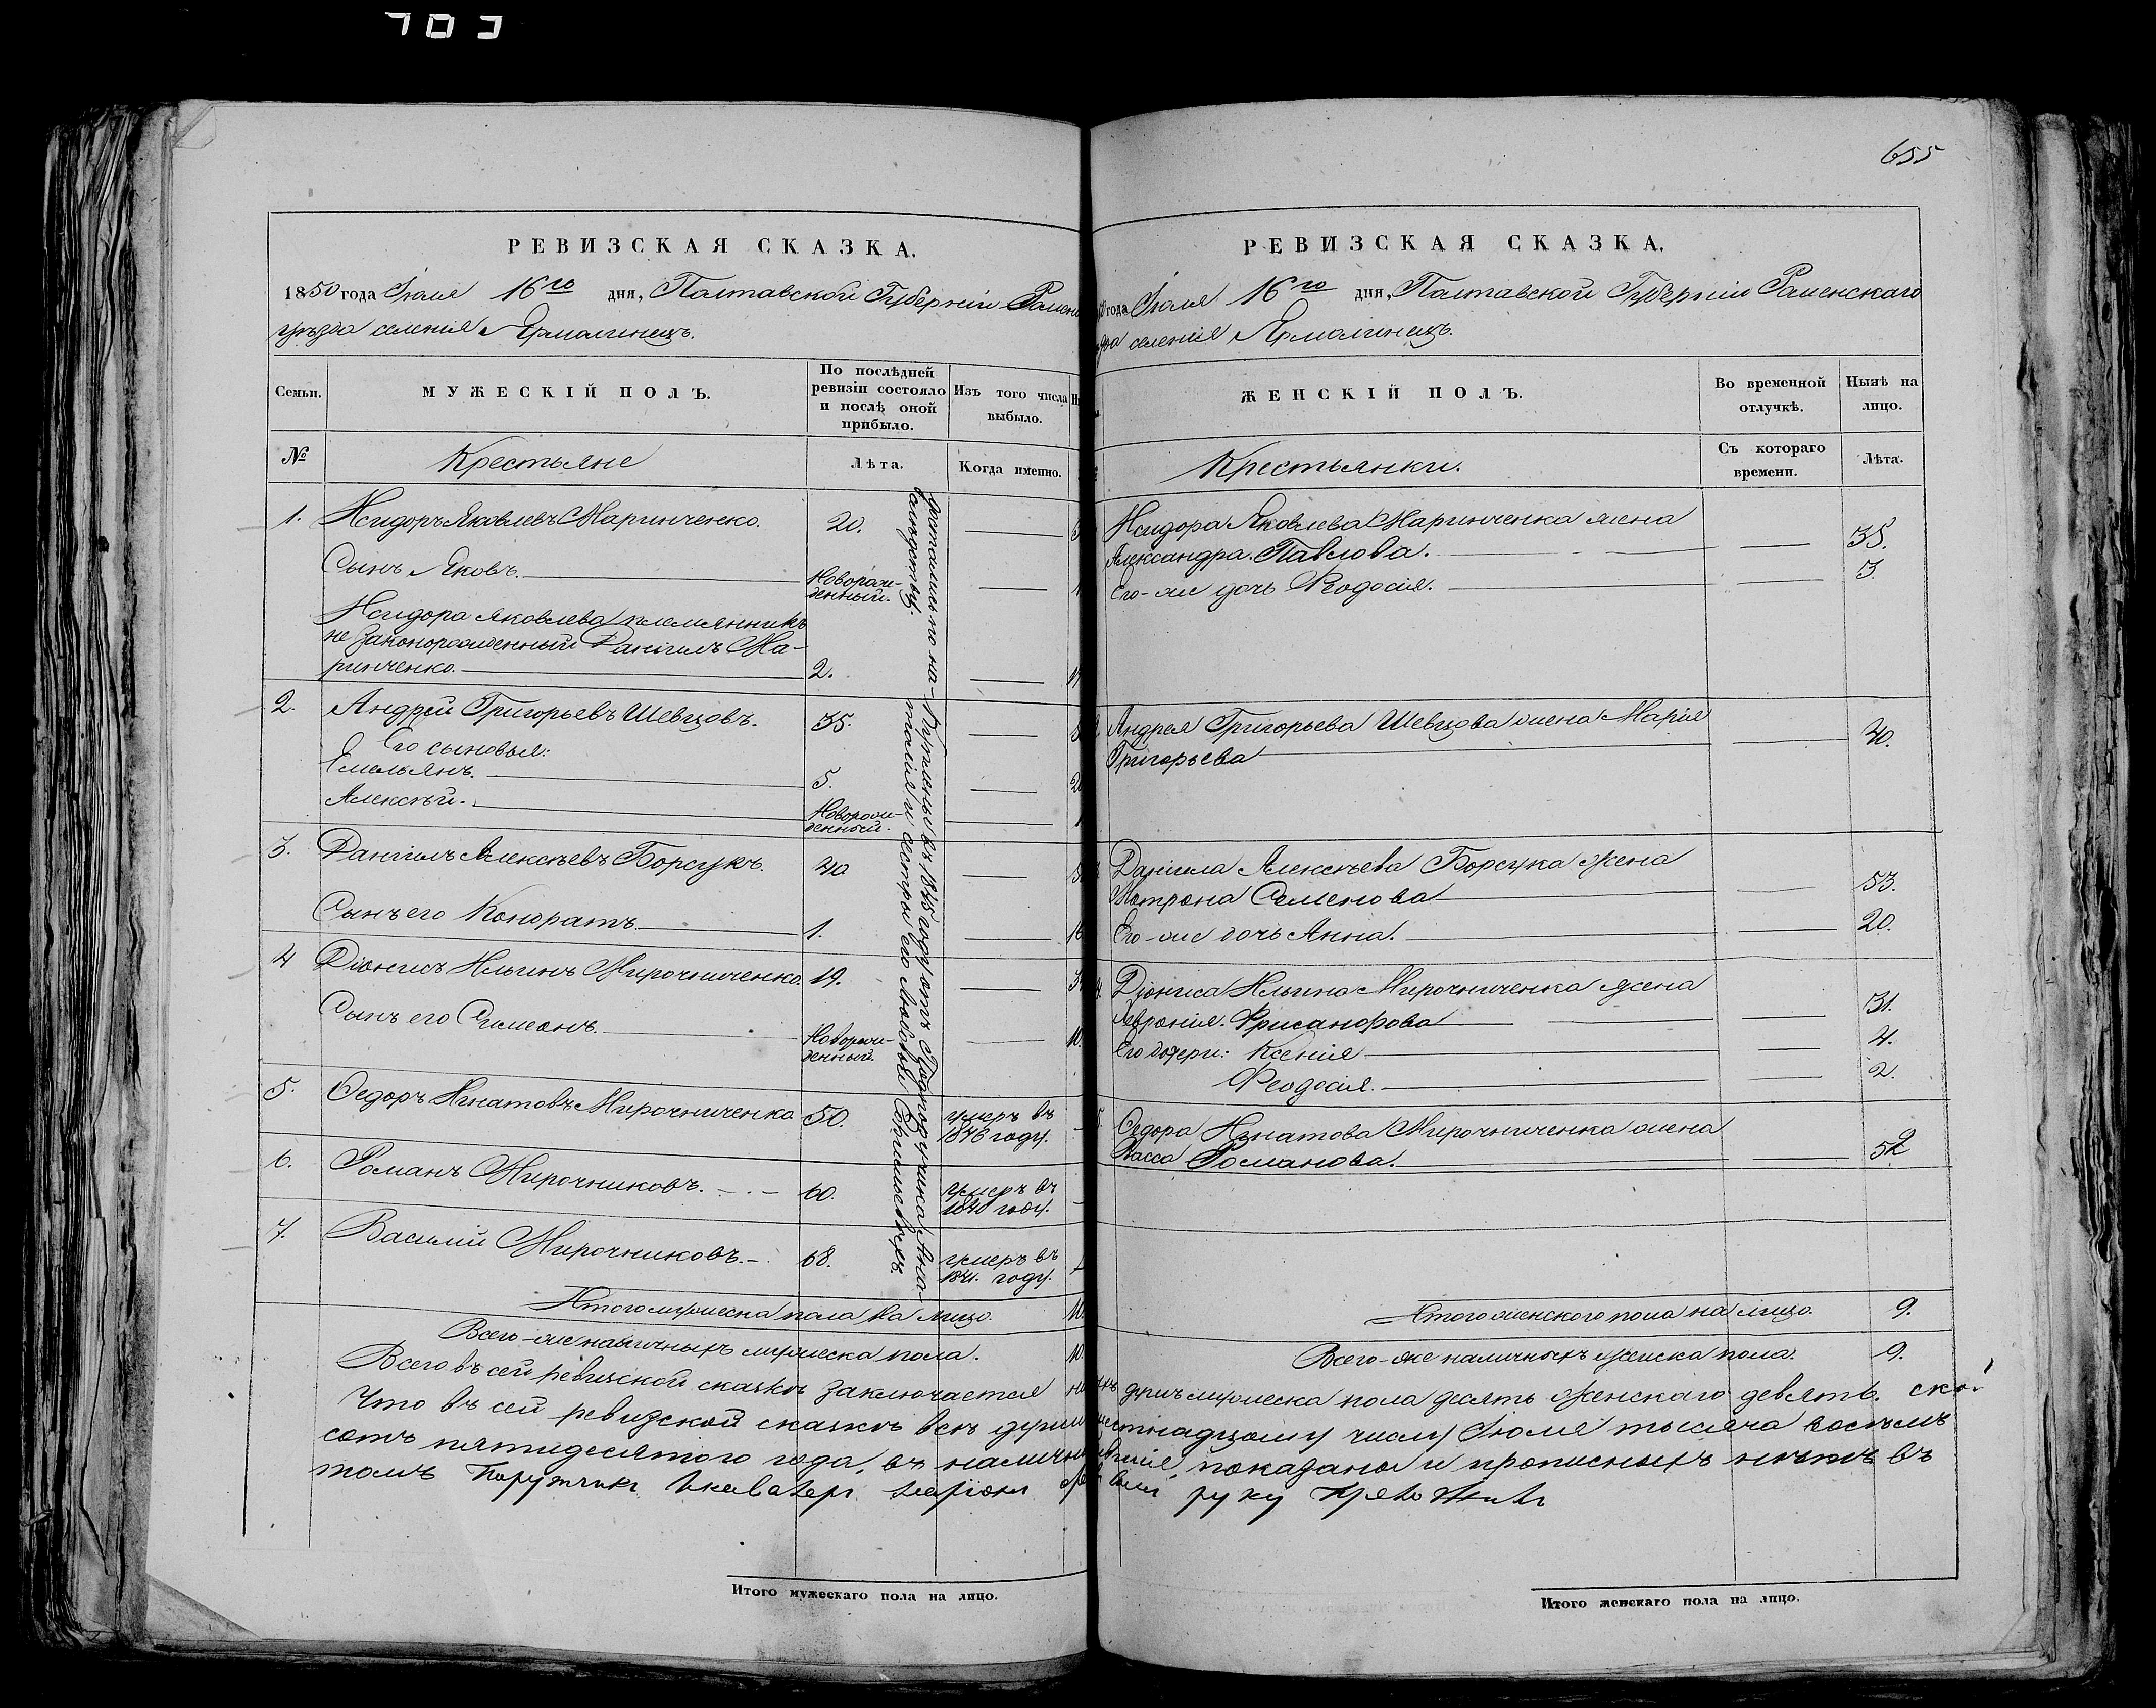 655
РЕВИЗСКАЯ СКАЗКА.
1850 года Іюля 16го дня, Полтавской Губерніи Ромен
уѣзда селенія Ярмолинецъ.
Семьи.
МУЖЕСКІЙ ПОЛЪ.
По послѣдней ревизіи состояло и послѣ оной прибыло.
Изъ того числа выбыло.
№
Крестьяне
Лѣта.
Когда именно.
1. Исидоръ Яковлевъ Маринченко. 20.
Сынъ Яковъ. Новорож-
денный.
Исидора Яковлева племянникъ
не законорожденный Даніилъ Ма-
ринченко. 2.
2. Андрей Григорьевъ Шевцовъ. 35.
Его сыновья:
Емельянъ. 5.
Алексѣй. Новорож-
денный.
3. Даніилъ Алексѣевъ Борсукъ. 40
Сынъ его Кондратъ. 1.
4 Діонисъ Ильинъ Мирочниченко. 19.
Сынъ его Симеонъ. Новорож-
денный.
5. Ѳедоръ Игнатовъ Мирочниченко 50. умеръ въ
1846 году.
6. Романъ Мирочниковъ. 60. умеръ въ
1840 году.
7. Василій Мирочниковъ. 68. умеръ въ
1841. году.
достались по на-
слѣдству.
Куплены въ 1845 году отъ Подпоручика Ана-
толія и сестры его Любови
Итого мужеска пола на лицо. 10.
Всего-же наличныхъ мужеска пола. 10.
Всего въ сей ревизской сказкѣ заключается
Что въ сей ревизской сказкѣ всѣ души
сотъ пятидесятого года, въ налич
томъ Поручикъ
Итого мужескаго пола на лицо.
РЕВИЗСКАЯ СКАЗКА.
года Іюля 16го дня, Полтавской Губерніи Роменскаго
селенія Ярмолинецъ.
ЖЕНСКІЙ ПОЛЪ.
Во временной отлучкѣ.
Нынѣ на лицо.
Крестьянки.
Съ котораго времени.
Лѣта.
Исидора Яковлева Маринченка жена
Александра Павлова. 35.
Его-же дочь Ѳеодосія. 3.
Андрея Григорьева Шевцова жена Марія
Григорьева 40.
Даніила Алексѣева Борсука жена
Мотрона Семенова 53.
Его-же дочь Анна. 20.
Діониса Ильина Мирочниченка жена
Хрисанфова 31.
Его дочери: Ксенія 4.
Ѳеодосія. 2.
Ѳедора Игнатова Мирочниченка жена
Васса Романова. 52
Итого женского пола на лицо. 9.
Всего-же наличныхъ женска пола. 9.
душъ мужеска пола десять женскаго девять.
числу Іюля тысяча восемь
показаны и прописныхъ нѣтъ въ
руку приложилъ
Итого женскаго пола на лицо.